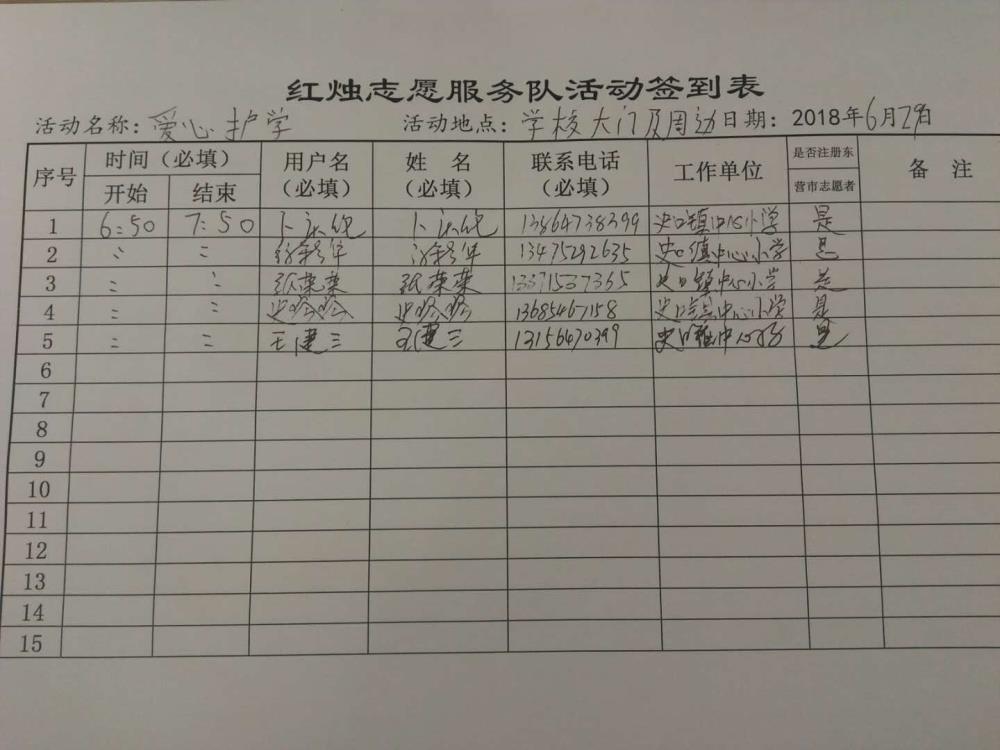 红烛志愿服务队活动签到表
活动名称：爱心护学 活动地点：学校大门及周边 日期：2018年6月29日
序号 时间（必填） 用户名（必填） 姓 名（必填） 联系电话（必填） 工作单位 是否注册东营市志愿者 备 注
开始 结束
1 6:50 7:50 13864738399 史口镇中心小学 是
2 〃 〃 13475292635 史口镇中心小学 是
3 〃 〃 张荣荣 张荣荣 13371537365 史口镇中心小学 是
4 〃 〃 13685467158 史口镇中心小学 是
5 〃 〃 王建三 王建三 13156470399 史口镇中心小学 是
6
7
8
9
10
11
12
13
14
15